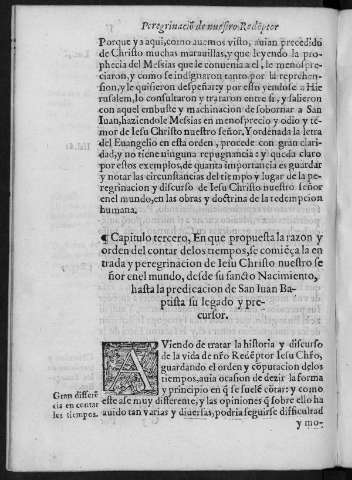 Peregrinació de nuestro Redẽptor
Porque ya aqui, como auemos visto, auian precedido
de Christo muchas marauillas, y que leyendo la pro-
phecia del Messias que le conuenia a el, le menospre-
ciaron, y como se indignaron tanto por la reprehen-
sion, y le quisieron despeñar: y por esto yendose a Hie
rusalem, lo consultaron y trataron entre si, y salieron
con aquel embuste y machinacion de sobornar a San
Iuan, haziendole Messias en menosprecio y odio y te-
mor de Iesu Christo nuestro señor. Y ordenada la letra
del Euangelio en esta orden, procede con gran clari-
dad, y no tiene ninguna repugnancia: y queda claro
por estos exemplos, de quanta importancia es guardar
y notar las circunstancias del tiempo y lugar de la pe-
regrinacion y discurso de Iesu Christo nuestro señor
en el mundo, en las obras y doctrina de la redempcion
humana.
¶ Capitulo tercero, En que propuesta la razon y
orden del contar de los tiempos, se comiẽça la en
trada y peregrinacion de Iesu Christo nuestro se
ñor en el mundo, desde su sancto Nacimiento,
hasta la predicacion de San Iuan Ba-
ptista su legado y pre-
cursor.
AViendo de tratar la historia y discurso
de la vida de nr̃o Redẽptor Iesu Chr̃o,
guardando el orden y cõputacion delos
tiempos, auia ocasion de dezir la forma
y principio en q̃ se suelẽ cõtar: y como
Gran differẽ
cia en contar
los tiempos.
este ase muy differente, y las opiniones q̃ sobre ello ha
auido tan varias y diuersas, podria seguirse difficultad
y mo-